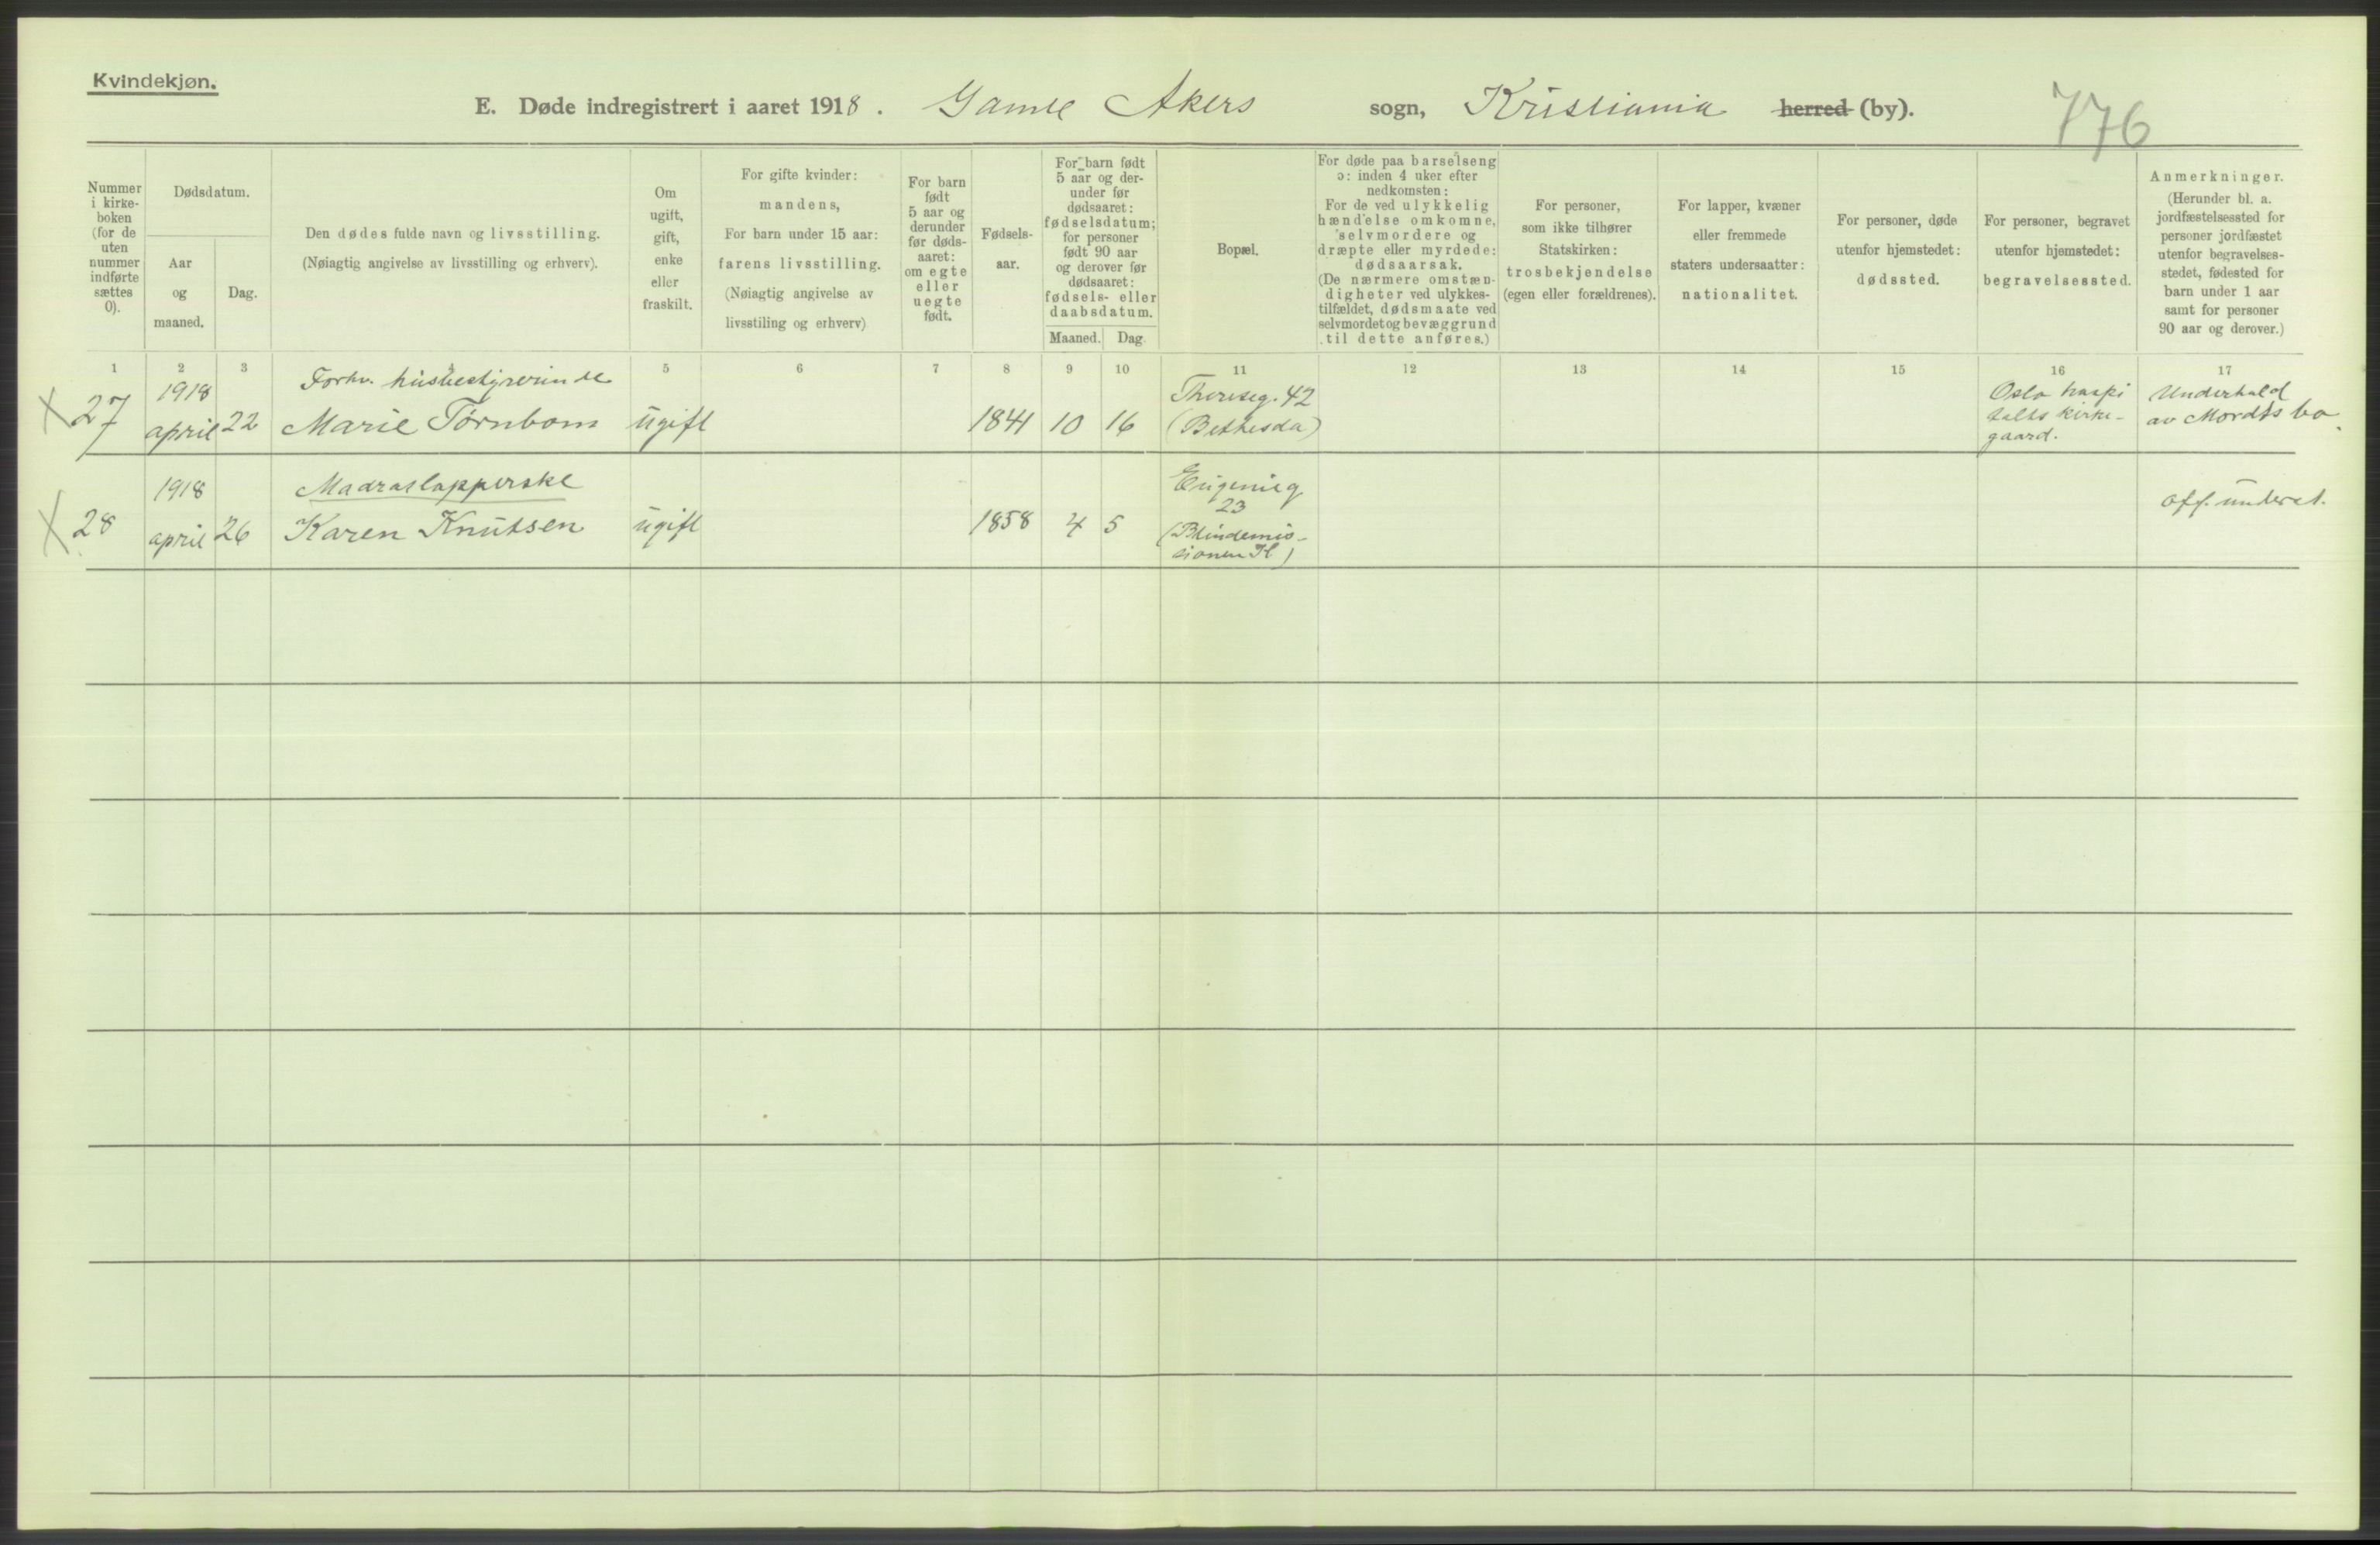 Kvindekjøn.
E. Døde indregistrert i aaret 1918. Gamle Akers sogn, Kristiania herred (by).
776
Nummer
i kirke-
boken
(for de
uten
nummer
indførte
sættes
0).
Dødsdatum.
Aar
og
maaned.
Dag.
Den dødes fulde navn og livsstilling.
(Nøiagtig angivelse av livsstilling og erhverv).
Om
ugift,
gift,
enke
eller
fraskilt.
For gifte kvinder:
mandens,
For barn under 15 aar:
farens livsstilling.
(Nøiagtig angivelse av
livsstiling og erhverv)
For barn
født
5 aar og
derunder
før døds-
aaret:
om egte
eller
uegte
født.
Fødsels-
aar.
For barn født
5 aar og der-
under før
dødsaaret:
fødselsdatum;
for personer
født 90 aar
og derover før
dødsaaret:
fødsels- eller
daabsdatum.
Maaned. Dag.
Bopæl.
For døde paa barselseng
ɔ: inden 4 uker efter
nedkomsten:
For de ved ulykkelig
hændelse omkomne,
selvmordere og
dræpte eller myrdede:
dødsaarsak.
(De nærmere omstæn-
digheter ved ulykkes-
tilfældet, dødsmaate ved
selvmordet og bevæggrund
til dette anføres.)
For personer,
som ikke tilhører
Statskirken:
trosbekjendelse
(egen eller forældrenes).
For lapper, kvæner
eller fremmede
staters undersaatter:
nationalitet.
For personer, døde
utenfor hjemstedet:
dødssted.
For personer, begravet
utenfor hjemstedet:
begravelsessted.
Anmerkninger.
(Herunder bl. a.
jordfæstelsessted for
personer jordfæstet
utenfor begravelses-
stedet, fødested for
barn under 1 aar
samt for personer
90 aar og derover.)
1 2 3 5 6 7 8 9 10 11 12 13 14 15 16 17
X 27
1918
april 22
Forhv. husbestyrerinde
Marie Tørnbom
ugift
1841 10 16
Thereseg. 42
(Bethesda)
Oslo hospi
talts kirke-
gaard.
Underhold
av Mordts bo.
X 28
1918
april 26
Madraslapperske
Karen Knutsen
ugift
1858 4 5
Eugenieg
23
(Blindemis-
sionen H)
off. underst.